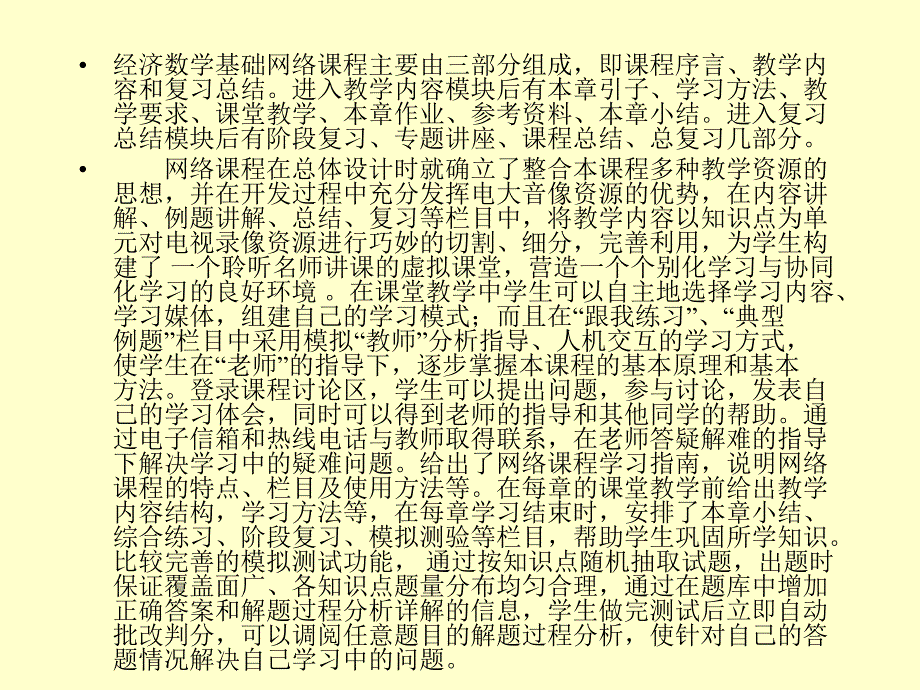 • 经济数学基础网络课程主要由三部分组成，即课程序言、教学内
容和复习总结。进入教学内容模块后有本章引子、学习方法、教
学要求、课堂教学、本章作业、参考资料、本章小结。进入复习
总结模块后有阶段复习、专题讲座、课程总结、总复习几部分。
• 网络课程在总体设计时就确立了整合本课程多种教学资源的
思想，并在开发过程中充分发挥电大音像资源的优势，在内容讲
解、例题讲解、总结、复习等栏目中，将教学内容以知识点为单
元对电视录像资源进行巧妙的切割、细分，完善利用，为学生构
建了 一个聆听名师讲课的虚拟课堂，营造一个个别化学习与协同
化学习的良好环境 。在课堂教学中学生可以自主地选择学习内容、
学习媒体，组建自己的学习模式；而且在“跟我练习”、“典型
例题”栏目中采用模拟“教师”分析指导、人机交互的学习方式，
使学生在“老师”的指导下，逐步掌握本课程的基本原理和基本
方法。登录课程讨论区，学生可以提出问题，参与讨论，发表自
己的学习体会，同时可以得到老师的指导和其他同学的帮助。通
过电子信箱和热线电话与教师取得联系，在老师答疑解难的指导
下解决学习中的疑难问题。给出了网络课程学习指南，说明网络
课程的特点、栏目及使用方法等。在每章的课堂教学前给出教学
内容结构，学习方法等，在每章学习结束时，安排了本章小结、
综合练习、阶段复习、模拟测验等栏目，帮助学生巩固所学知识。
比较完善的模拟测试功能， 通过按知识点随机抽取试题，出题时
保证覆盖面广、各知识点题量分布均匀合理，通过在题库中增加
正确答案和解题过程分析详解的信息，学生做完测试后立即自动
批改判分，可以调阅任意题目的解题过程分析，使针对自己的答
题情况解决自己学习中的问题。